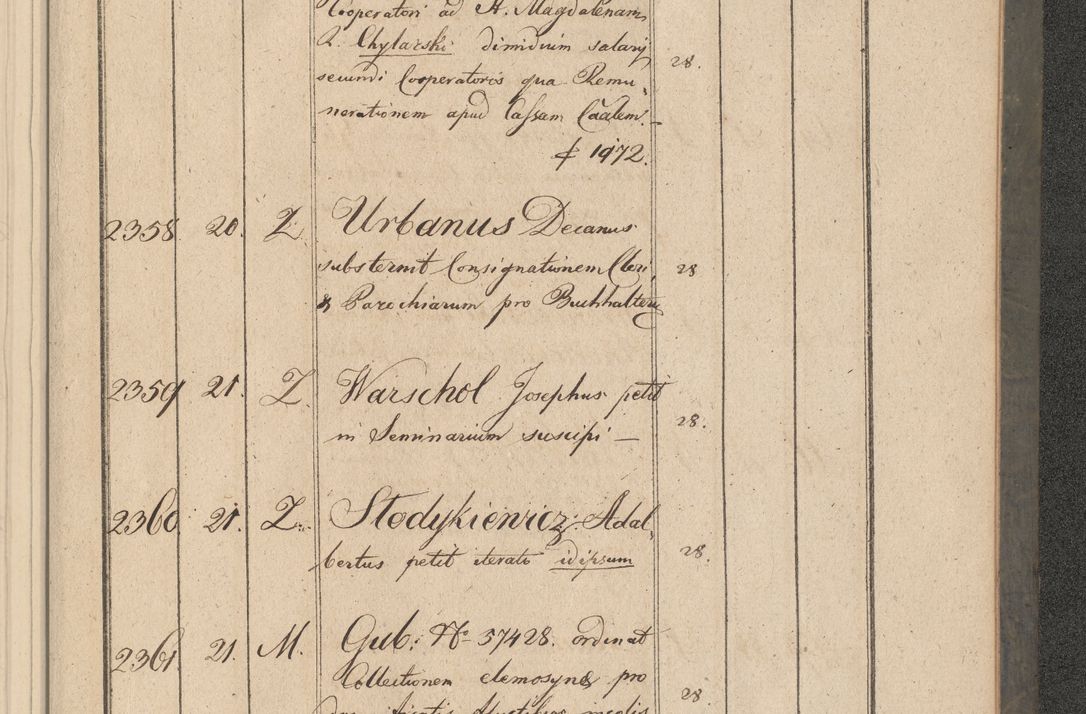 Cooperatori ad St. Magdalenam
R. Chylarski dimidium salarij
28.
secundi Cooperatoris qua Remu„
nerationem apud Cassam Caālem. –
1972.
2358 20. Z. Urbanus Decanus
substernit Consignationem Cleri, 28
& Parochiarum pro Buchhalterij
2359 21. Z. Warschol Josephus petit
in Seminarium suscipi — 28.
2360. 21. Z. Stodykiewicz Adal„
bertus petit iterato idipsum 28.
2361 21. M. Gub: No 37428. ordinat
Collectionem elemosynæ pro
28